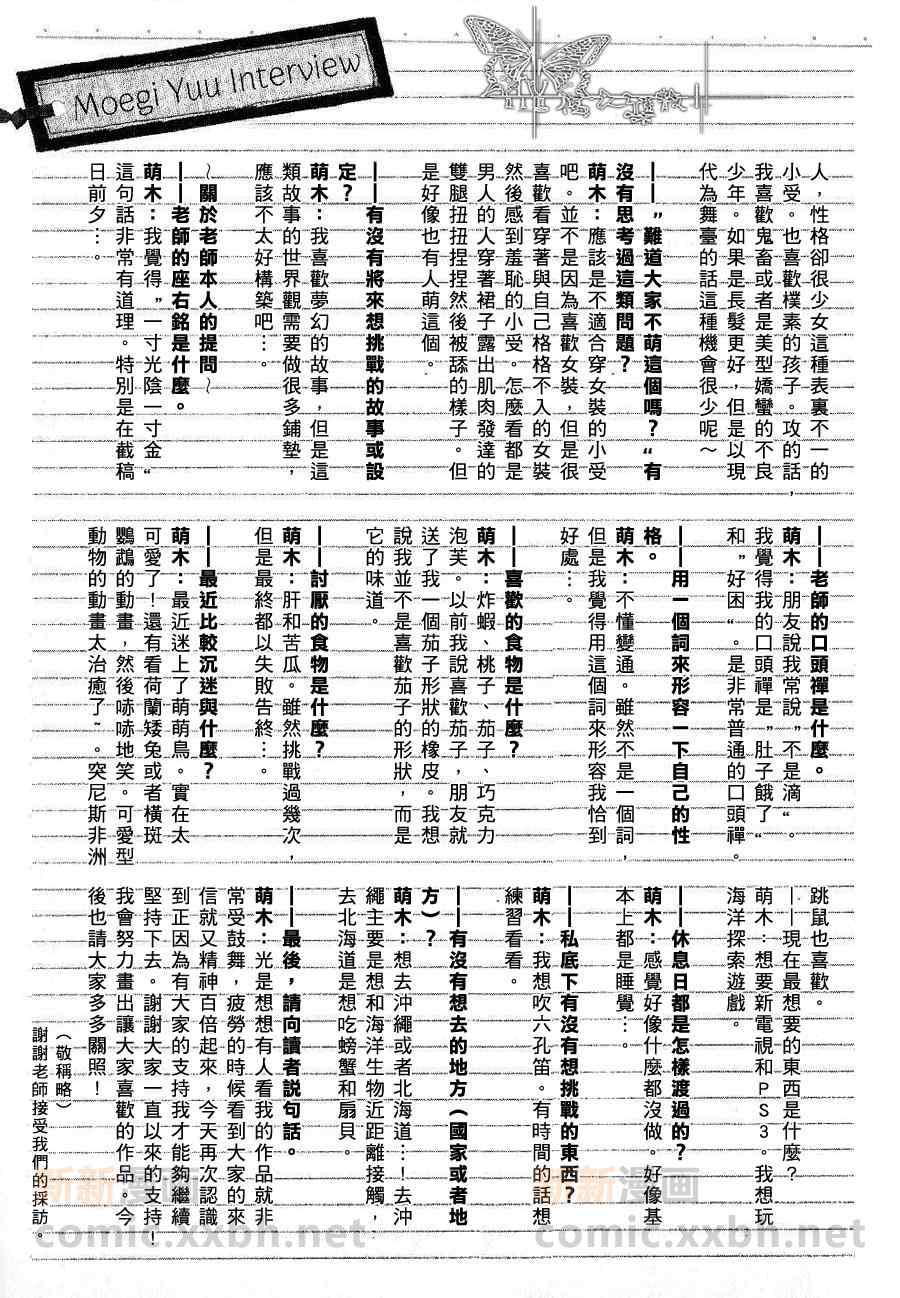 Moegi Yuu Interview
人，性格卻很少女這種表裏不一的
小受。也喜歡樸素的孩子。攻的話，
我喜歡鬼畜或者是美型嬌蠻的不良
少年。如果是長髮更好，但是以現
代為舞臺的話這種機會很少呢～
——"難道大家不萌這個嗎？"有
沒有思考過這類問題？
萌木：應該是不適合穿女裝的小受
吧。並不是因為喜歡女裝，但是很
喜歡看穿著與自己格格不入的女裝
然後感到羞恥的小受。怎麼看都是
男人的人穿著裙子露出肌肉發達的
雙腿扭扭捏捏然後被舔的樣子。但
是好像也有人萌這個。
——有沒有將來想挑戰的故事或設
定？
萌木：我喜歡夢幻的故事，但是這
類故事的世界觀需要做很多鋪墊，
應該不太好構築吧…。
～關於老師本人的提問～
——老師的座右銘是什麼。
萌木：我覺得"一寸光陰一寸金"
這句話非常有道理。特別是在截稿
日前夕…。
——老師的口頭禪是什麼。
萌木：朋友說我常說"不是滴"。
我覺得我的口頭禪是"肚子餓了"
和"好困"。是非常普通的口頭禪。
——用一個詞來形容一下自己的性
格。
萌木：不懂變通。雖然不是一個詞，
但是我覺得用這個詞來形容我恰到
好處…。
——喜歡的食物是什麼？
萌木：炸蝦、桃子、茄子、巧克力
泡芙。以前我說喜歡茄子，朋友就
送了我一個茄子形狀的橡皮。我想
說我並不是喜歡茄子的形狀，而是
它的味道。
——討厭的食物是什麼？
萌木：肝和苦瓜。雖然挑戰過幾次，
但是最終都以失敗告終…。
——最近比較沉迷與什麼？
萌木：最近迷上了萌萌鳥。實在太
可愛了！還有看荷蘭矮兔或者橫斑
鸚鵡的動畫，然後哧哧地笑。可愛型
動物的動畫太治癒了~。突尼斯非洲
跳鼠也喜歡。
——現在最想要的東西是什麼？
萌木：想要新電視和PS3。我想玩
海洋探索遊戲。
——休息日都是怎樣渡過的？
萌木：感覺好像什麼都沒做。好像基
本上都是睡覺…
——私底下有沒有想挑戰的東西？
萌木：我想吹六孔笛。有時間的話想
練習看看。
——有沒有想去的地方（國家或者地
方）？
萌木：想去沖繩或者北海道…！去沖
繩主要是想和海洋生物近距離接觸，
去北海道是想吃螃蟹和扇貝。
——最後，請向讀者說句話。
萌木：光是想想有人看我的作品就非
常受鼓舞，疲勞的時候看到大家的來
信就又精神百倍起來，今天再次認識
到正因為有大家的支持我才能夠繼續
堅持下去。謝謝大家一直以來的支持！
我會努力畫出讓大家喜歡的作品。今
後也請大家多多關照！
（敬稱略）
謝謝老師接受我們的採訪。
新新漫画
comic.xxbn.net
新新漫画
comic.xxbn.net